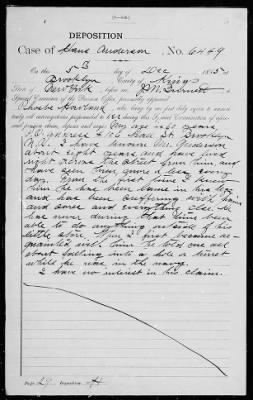 DEPOSITION
Case of Hans Anderson, No. 6449
On this 5th day of Dec, 1885, at
Brooklyn, County of Kings
State of New York, before me,
Special Examiner of the Pension Office, personally appeared
Phoebe, who, being by me first duly sworn to answer
truly all interrogatories propounded to her during this Special Examination of aforesaid
pension claim, deposes and says: My age is years
address St Brooklyn
N.Y. I have known Mr Anderson
about eight years and have lived
right across the street from him and
have seen him every day
every day. From the first time I knew
him he has been lame in his leg
and has been suffering with pains
and sores and everything else. He
has never during that time been
able to do anything outside of his
little store. When I first became ac-
quainted with him he told me all
about falling into a hole
while he was in the navy.
I have no interest in his claim.
Page 29 Deposition H